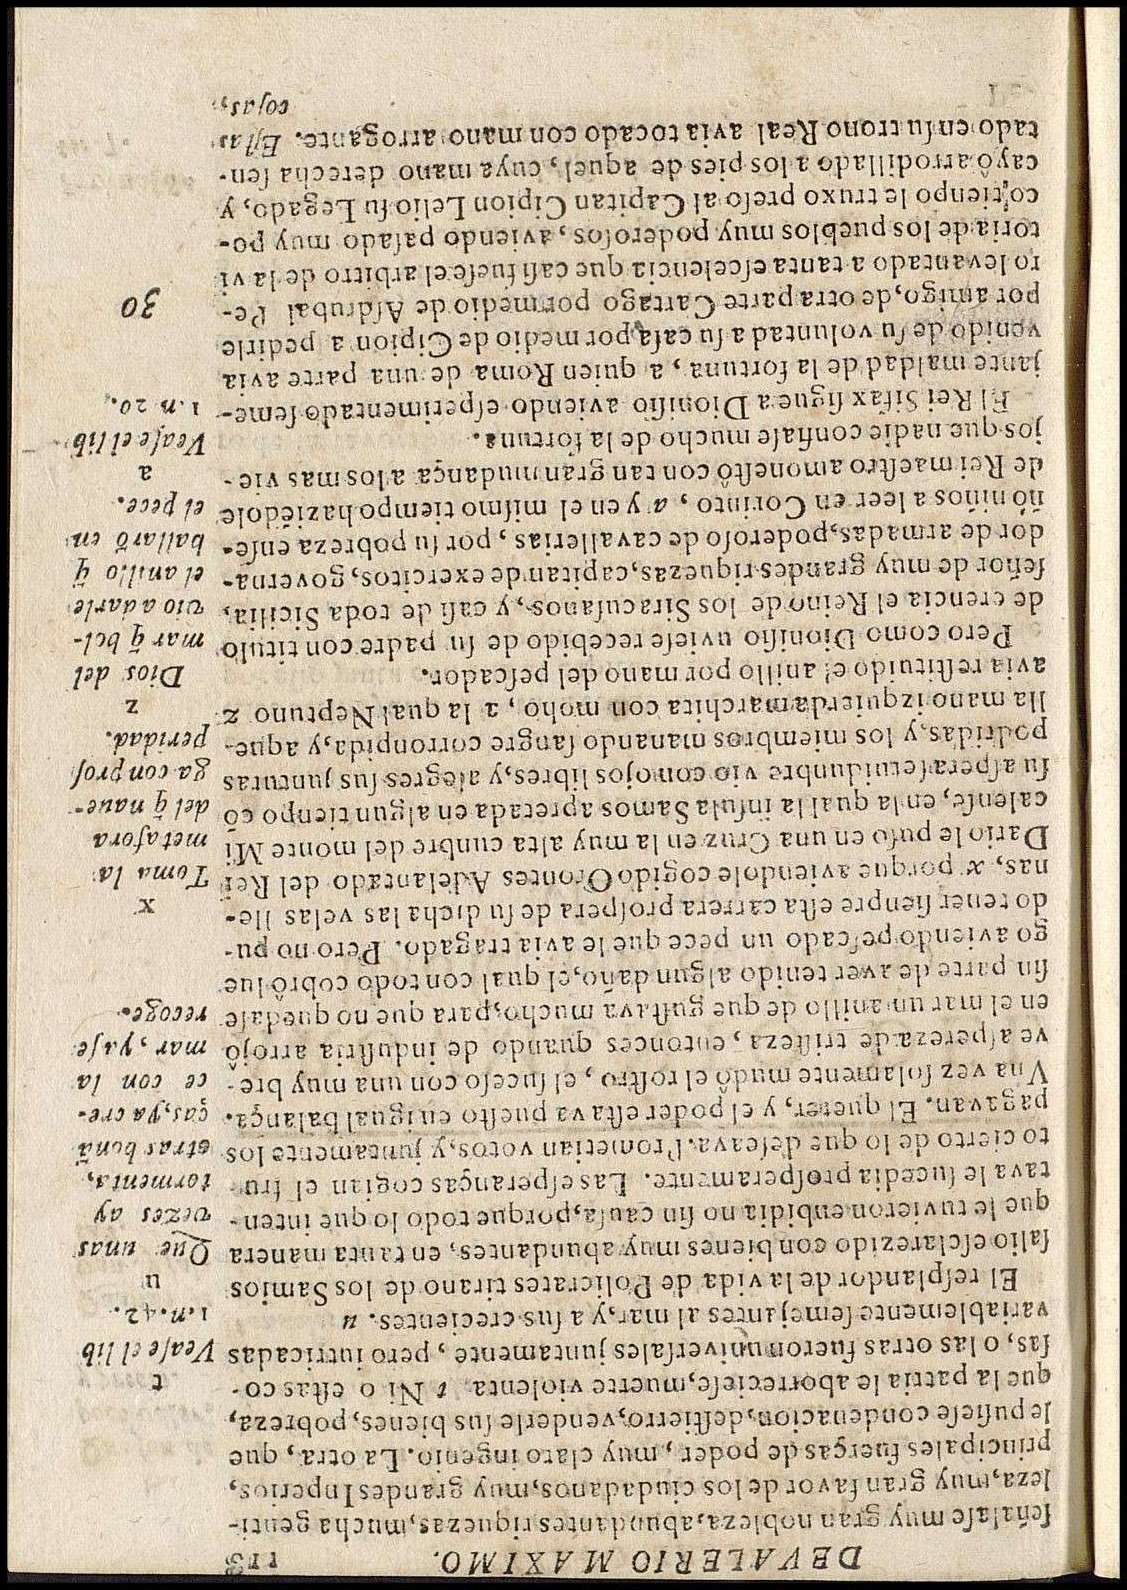 DE VALERIO MAXIMO. 113
señalase muy gran nobleza, abundantes riquezas, mucha genti-
leza, muy gran favor de los ciudadanos, muy grandes Inperios,
principales fuerças de poder, muy claro ingenio. La otra, que
le pusiese condenacion, destierro, venderle sus bienes, pobreza,
que la patria le aborreciese, muerte violenta. t Ni o estas co-
sas, o las otras fueron universales juntamente, pero intricadas
variablemente semejantes al mar, y a sus crecientes. u
El resplandor de la vida de Policrates tirano de los Samios
salio esclarezido con bienes muy abundantes, en tanta manera
que le tuvieron enbidia no sin causa, porque todo lo que inten-
tava le sucedia prosperamente. Las esperanças cogian el fru-
to cierto de lo que deseava. Prometian votos, y juntamente los
pagavan. El querer, y el poder estava puesto en igual balança.
Vna vez solamente mudô el rostro, el suceso con una muy bre-
ve aspereza de tristeza, entonces quando de industria arrojô
en el mar un anillo de que gustava mucho, para que no quedase
sin parte de aver tenido algun daño, el qual con todo cobrô lue
go aviendo pescado un pece que le avia tragado. Pero no pu-
do tener sienpre esta carrera prospera de su dicha las velas lle-
nas, x porque aviendole cogido Orontes Adelantado del Rei
Dario le puso en una Cruz en la muy alta cunbre del monte Mi
calense, en la qual la insula Samos apretada en algun tienpo cõ
su aspera servidunbre vio con ojos libres, y alegres sus junturas
podridas, y los miembros manando sangre corronpida, y aque-
lla mano izquierda marchita con moho, a la qual Neptuno z
avia restituido el anillo por mano del pescador.
Pero como Dionisio uviese recebido de su padre con titulo
de erencia el Reino de los Siracusanos, y casi de toda Sicilia,
señor de muy grandes riquezas, capitan de exercitos, governa-
dor de armadas, poderoso de cavallerias, por su pobreza ense-
ñô niños a leer en Corinto, a y en el mismo tiempo haziẽdole
de Rei maestro amonestô con tan gran mudança a los mas vie-
jos que nadie confiase mucho de la fortuna.
El Rei Sifax sigue a Dionisio aviendo esperimentado seme-
jante maldad de la fortuna, a quien Roma de una parte avia
venido de su voluntad a su casa por medio de Cipion a pedirle
por amigo, de otra parte Cartago por medio de Asdrubal Pe-
ro levantado a tanta escelencia que casi fuese el arbitro de la vi
toria de los pueblos muy poderosos, aviendo pasado muy po-
co tienpo le truxo preso al Capitan Cipion Lelio su Legado, y
cayô arrodillado a los pies de aquel, cuya mano derecha sen-
tado en su trono Real avia tocado con mano arrogante. Estas
cosas,
t
Vease el lib
1. n. 42.
u
Que unas
vezes ay
tormenta,
otras bonã
ças, ya cre-
ce con la
mar, ya se
recoge.
x
Toma la
metafora
del q̃ nave-
ga con pros
peridad.
z
Dios del
mar q̃ bol-
vio a darle
el anillo q̃
hallarõ en
el pece.
a
Vease el lib
1. n. 20.
30